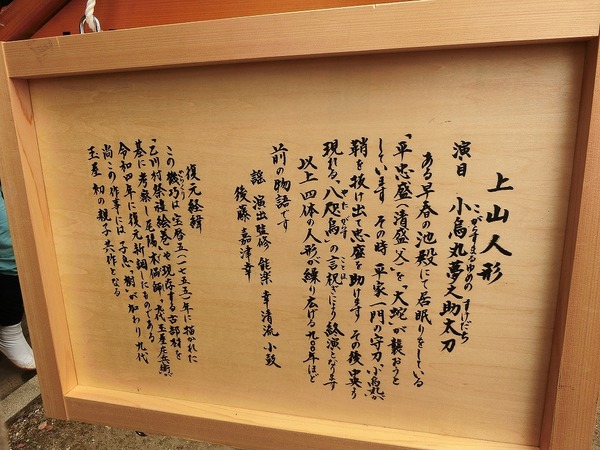 上山人形
演目 小烏丸夢之助太刀
こがらすまるゆめの すけだち
ある早春の池殿にて居眠りをしている
「平忠盛（清盛父）」を「大蛇」が襲おうと
しています その時 平家一門の守刀「小烏丸」が
鞘を抜け出て忠盛を助けます その後中央より
現れる「八咫烏」の言祝ぎにより終演となります
やたがらす ことほ
以上四体の人形が繰り広げる九〇〇年ほど
前の物語です
謡 演出監修 能楽 幸清流 小鼓
後藤 嘉津幸
復元経緯
この機巧は宝暦五（一七五五）年に描かれた
からくり
「乙川村祭禮絵巻」や現存する古部材を
基に考察し尾陽木偶師「九代玉屋庄兵衛」が
令和四年に復元新調したものである
尚この作事には子息「樹」が加わり 九代
玉屋初の親子共作となる